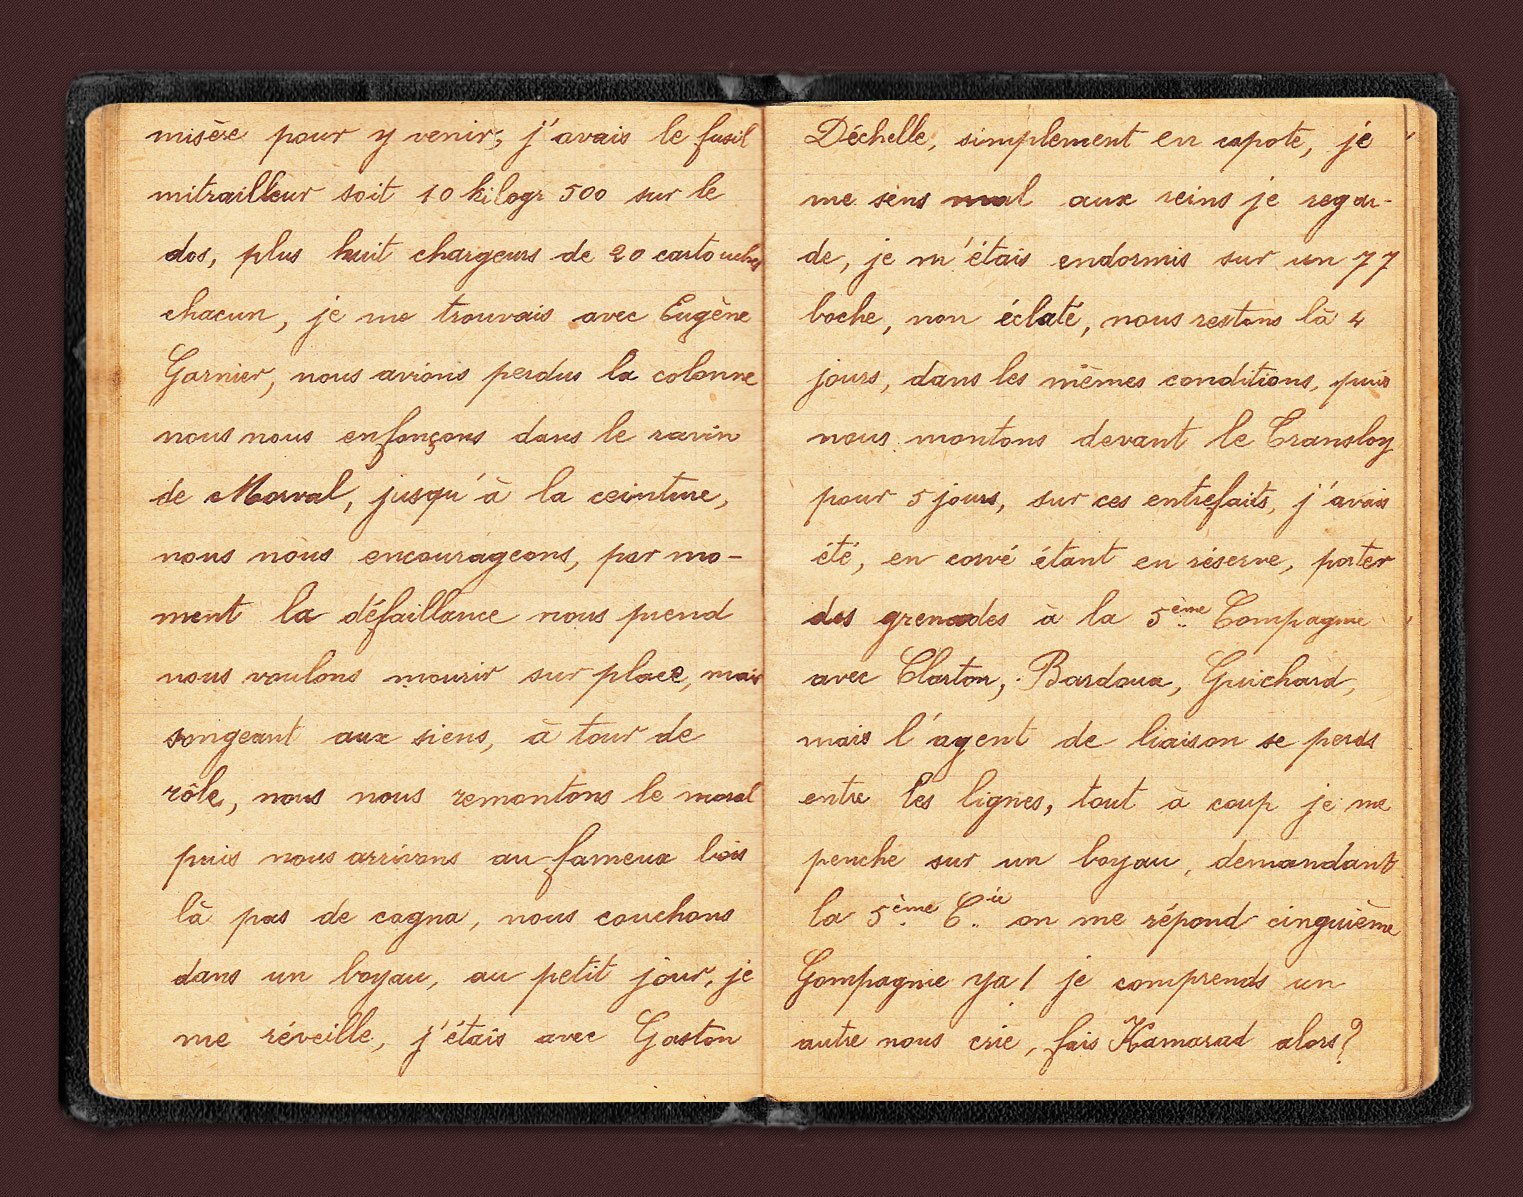 misère pour y venir; j'avais le fusil
mitrailleur soit 10 kilogr 500 sur le
dos, plus huit chargeurs de 20 cartouches
chacun, je me trouvais avec Eugène
Garnier, nous avions perdus la colonne
nous nous enfonçons dans le ravin
de Morval, jusqu'à la ceinture,
nous nous encourageons, par mo-
ment la défaillance nous prend
nous voulons mourir sur place, mais
songeant aux siens, à tour de
rôle, nous nous remontons le moral
puis nous arrivons au fameux bois
là pas de cagna, nous couchons
dans un boyau, au petit jour, je
me réveille, j'étais avec Gaston
Déchelle, simplement en capote, je
me sens mal aux reins je regar-
de, je m'étais endormis sur un 77
boche, non éclaté, nous restons là 4
jours, dans les mêmes conditions, puis
nous montons devant le Transloy
pour 5 jours, sur ces entrefaits, j'avais
été, en corvé étant en réserve, porter
des grenades à la 5ème Compagnie
avec Clarton, Bardoux, Guichard,
mais l'agent de liaison se perds
entre les lignes, tout à coup je me
penche sur un boyau, demandant
la 5ème Cie on me répond cinguième
Gompagnie ya! je comprends un
autre nous crie, fais Kamarad alors?